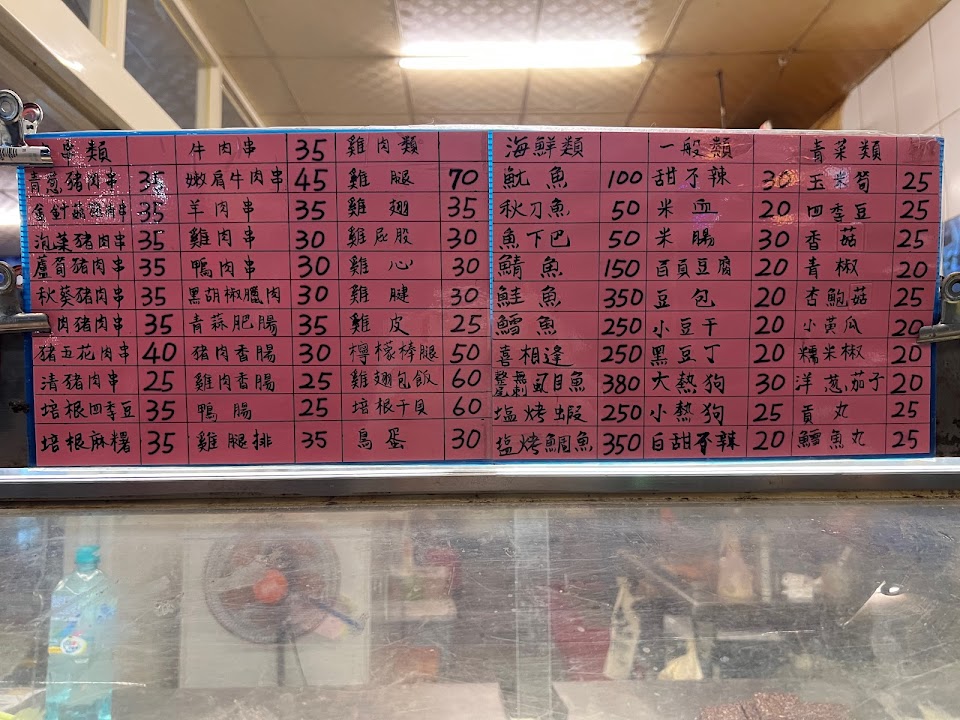 類 牛肉串 35 雞肉類 海鮮類 一般類 青菜類
青蔥豬肉串 35 嫩肩牛肉串 45 雞腿 70 魷魚 100 甜不辣 30 玉米筍 25
金針菇豬肉串 35 羊肉串 35 雞翅 35 秋刀魚 50 米血 20 四季豆 25
泡菜豬肉串 35 雞肉串 30 雞屁股 30 魚下巴 50 米腸 30 香菇 25
蘆筍豬肉串 35 鴨肉串 30 雞心 30 鯖魚 150 百頁豆腐 20 青椒 20
秋葵豬肉串 35 黑胡椒臘肉 30 雞腱 30 鮭魚 350 豆包 20 杏鮑菇 25
肉豬肉串 35 青蒜肥腸 35 雞皮 25 鱈魚 250 小豆干 20 小黃瓜 20
豬五花肉串 40 豬肉香腸 30 檸檬棒腿 50 喜相逢 250 黑豆丁 20 糯米椒 20
清豬肉串 25 雞肉香腸 25 雞翅包飯 60 整尾無刺虱目魚 380 大熱狗 30 洋蔥、茄子 20
培根四季豆 35 鴨腸 25 培根干貝 60 塩烤蝦 250 小熱狗 25 貢丸 25
培根麻糬 35 雞腿排 35 鳥蛋 30 塩烤鯛魚 350 白甜不辣 20 鱈魚丸 25